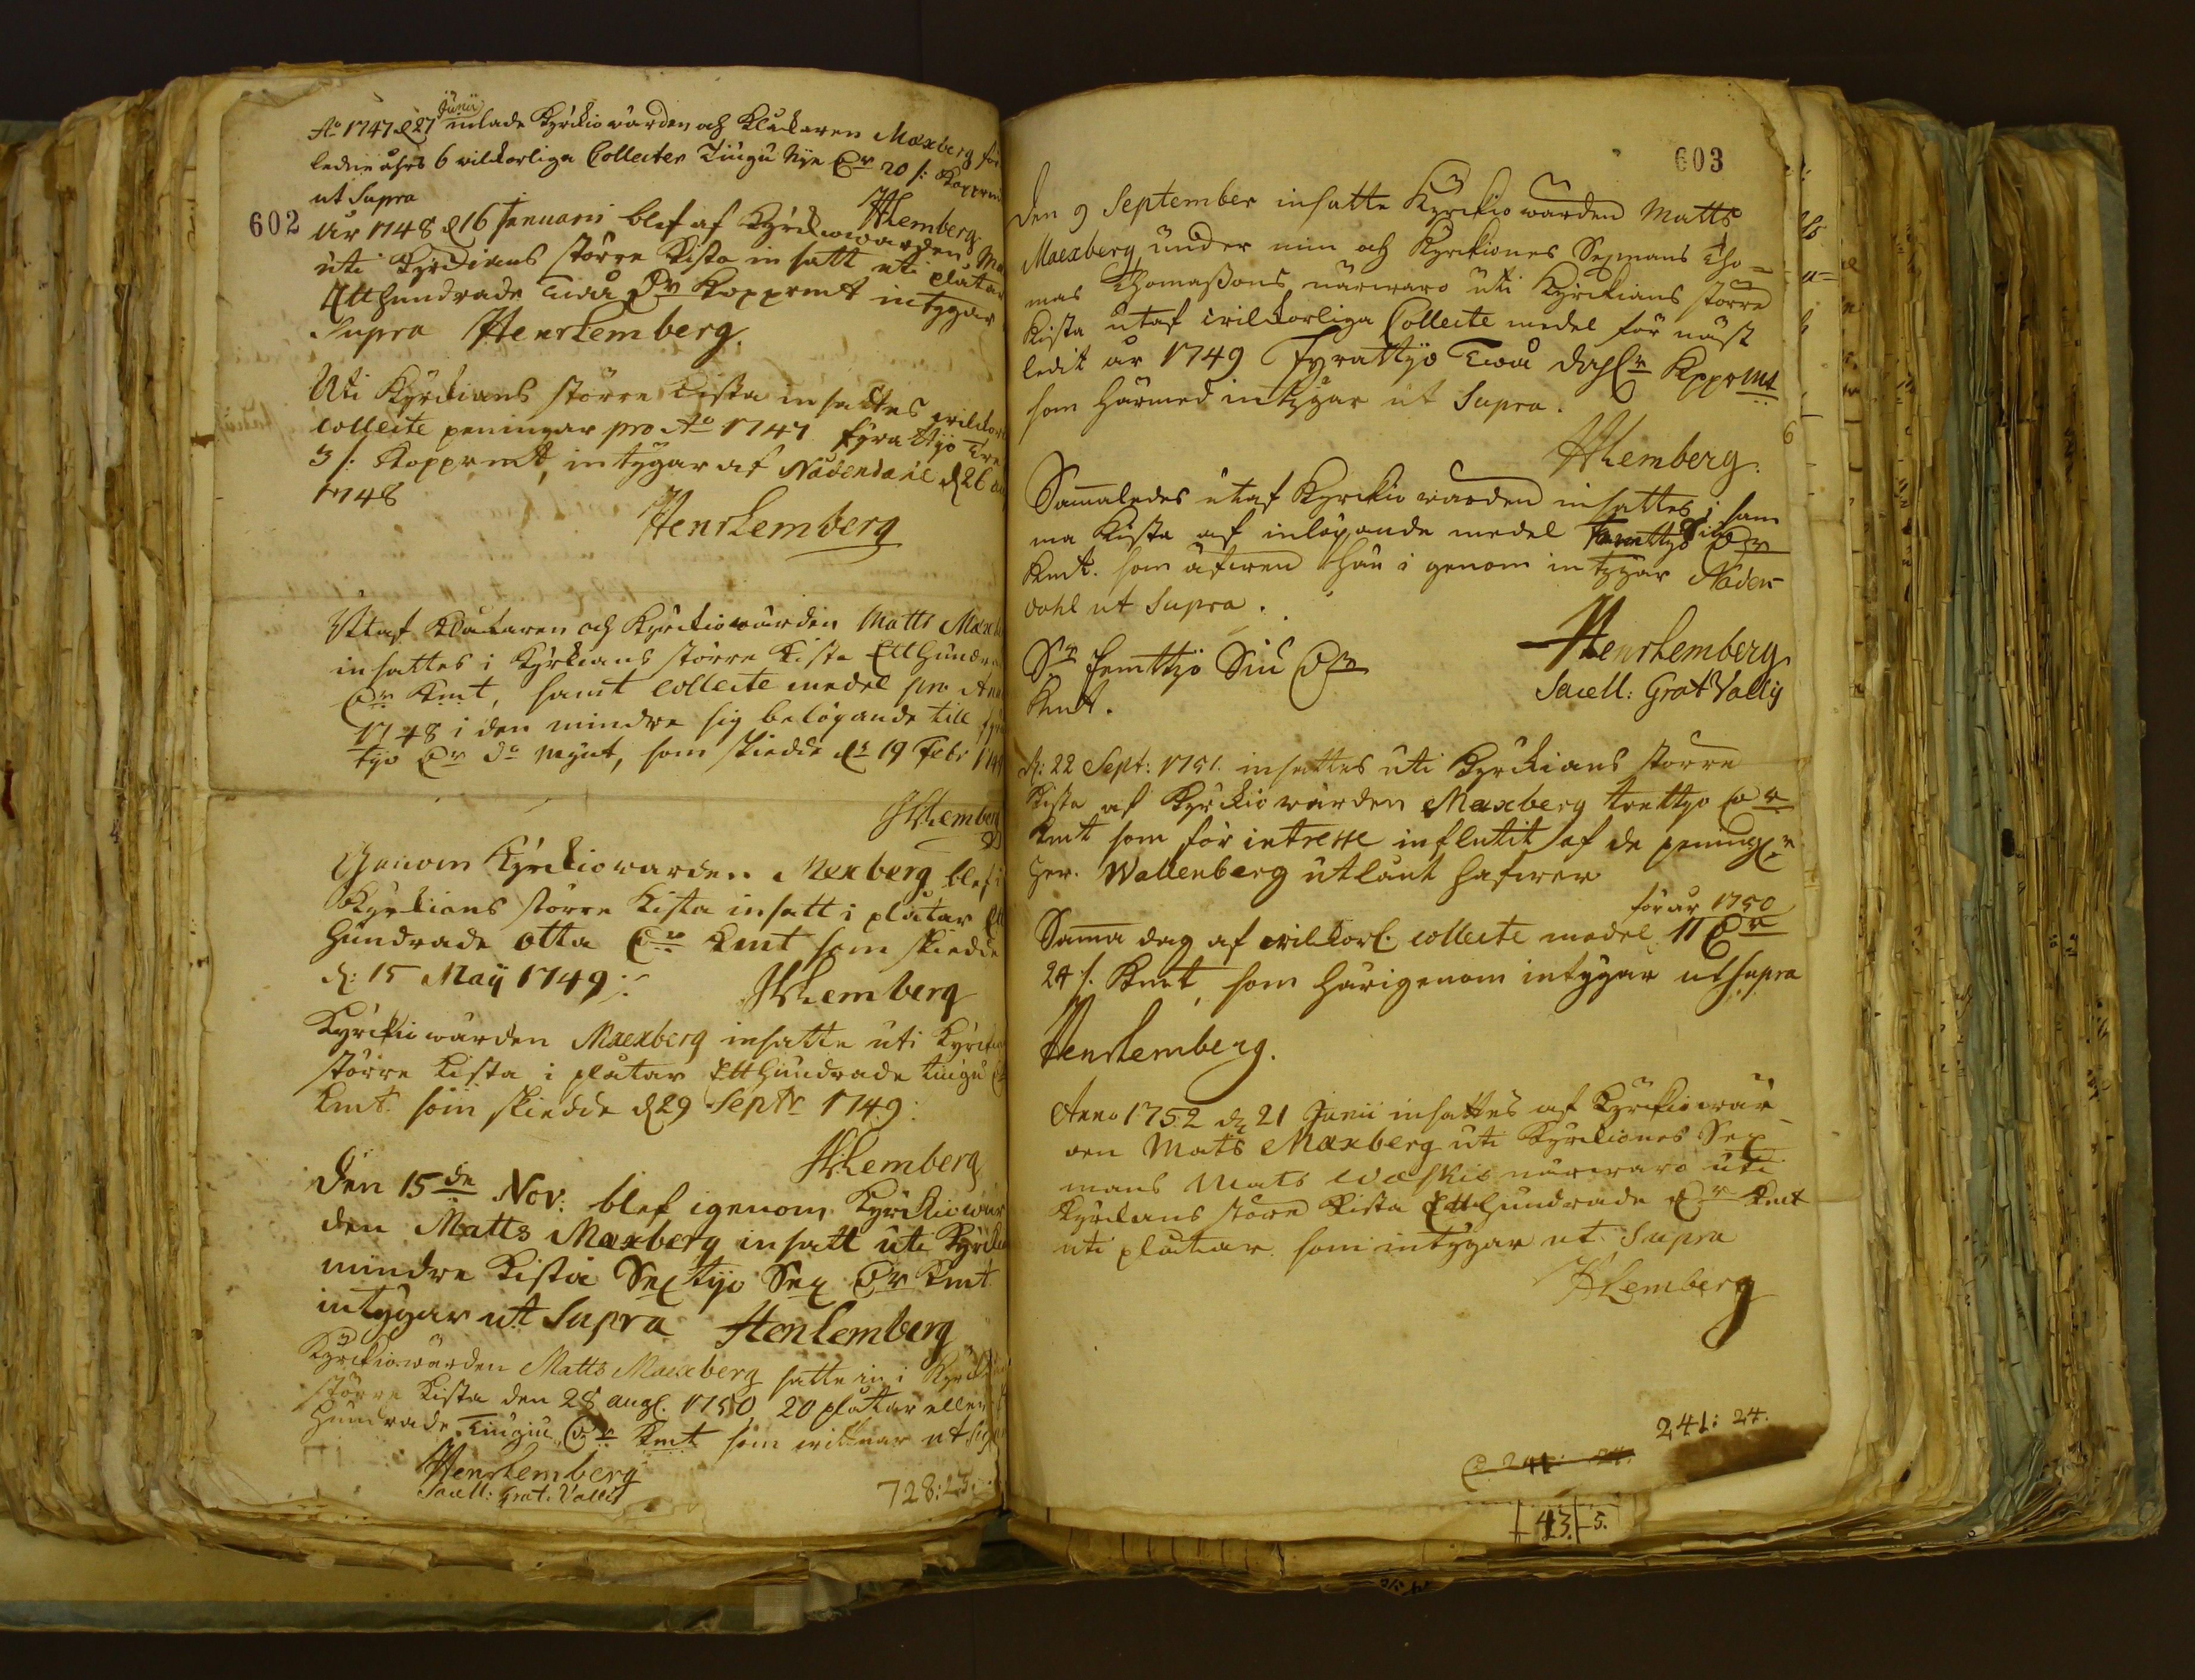 602
Junii
Ao 1747 d 27 inlade Kyrckiowärden och Klåckaren Maxberg för
ledne åhrs 6 wilckorliga Collecter Tiugu Nije Dr 20 /: Kopprmt
ut Supra
HLemberg
År 1748 d 16 Januari blef af Kyrckiowärden
uti Kyrckians större Kista insatt uti plåtar
Etthundrade Twå Dr Kopprmt intygar
Supra HenrLemberg.
Uti Kyrckians större Kista insattes wilckorl
Collecte peningar pro Ao 1747 fyratijo Tre
3 /: Kopprmt, intygar af Nådendahl d 26
1748
HenrLemberg
Uttaf Klåckaren och Kyrckiowärden Matts Maxb
insattes i Kyrckians större Kista Etthundra
Dr Kmt, samt Collecte medel pro Anno
1748 i den mindre sig belöpande till
tijo Dr do Mynt, som skiedde dn 19 Febr 1749
HLemberg
Genom Kyrckiowärden Mexberg blef i
Kyrckians större Kista insatt i plåtar Ett
hundrade otta Dr Kmt som skiedde
d: 15 Maij 1749 :
HLemberg
Kyrckiowärden Maexberg insatte uti Kyrckia
större Kista i plåtar Etthundrade tiugu
Kmt. som skiedde d 29 Septr 1749:
HLemberg
Den 15de Nov: blef igenom Kyrckiowär
den Matts Maexberg insatt uti Kyrckia
mindre Kista Sextijo Sex Dr Kmt
intygar ut Supra HenLemberg
Kyrckiowärden Matts Maexberg satte in i Kyrck
större Kista den 28 augl. 1750 20 plåtar eller
hundrade Tiugiu Dr Kmt som witnar ut Supra
HenrLemberg
Sacell: Grat: Vallis
728:23
603
Den 9 September insatte Kyrckiowärden Matts
Maexberg under min och Kyrckiones Sexmans Tho=
mas Thomassons närwaro uti Kyrckians större
Kista utaf wilckorliga Collecte medel för näst
ledit år 1749 Fyratijo Twå Dahlr Kpprmt
som härmed intygar ut Supra.
HLemberg.
Sammaledes utaf Kyrckiowärden insattes i sam
ma Kista af inlöpande medel Femttijo Siu Dr
Kmt. som äfwen här i genom intygar Nåden-
dahl ut Supra.
HenrLemberg
Sacell: Grat Vallis
Sr femttijo Siu Dr
Kmt.
d: 22 Sept: 1751. insattes uti Kyrckians större
Kista af Kyrckiowärden Maexberg trettijo Dr
Kmt som för intresse influtit af de peningr
Her. Wallenberg utlånt hafwer
för år 1750
Samma dag af wilckorl. collecte medel 11 Dr
24 /. Kmt, som härigenom intygar ut supra
HenrLemberg.
Anno 1752 d 21 Junii insattes af Kyrckiowär-
den Mats Maexberg uti Kyrckiones Sex
mans Mats närwaro uti
Kyrckians störe Kista Etthundrade Dr Kmt
uti plåtar som intygar ut Supra
HLemberg
241: 24.
D 241: 24.
43. 5.